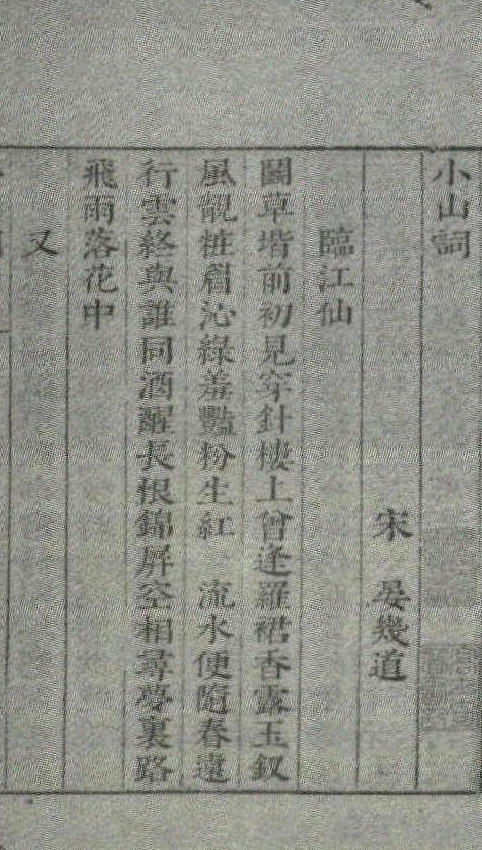 小山詞
宋 晏幾道
臨江仙
鬭草堦前初見穿針樓上曾逢羅裙香露玉釵
風靚粧眉沁綠羞豔粉生紅 流水便隨春遠
行雲終與誰同酒醒長恨錦屏空相尋夢裏路
飛雨落花中
又